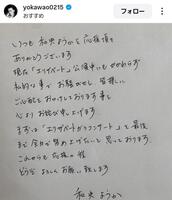 yokawao0215
おすすめ
フォロー
いつも 和央ようかを応援頂き
ありがとうございます
現在「エリザベート」公演中にもかかわらず
私的な事で お騒がせし 皆様に
ご心配をおかけしております事を
心よりお詫び申し上げます
まずは「エリザベートガラコンサート」を最後
まで全力で努め上げたいと思っております
これからも応援の程
どうぞ よろしくお願い致します
和央ようか